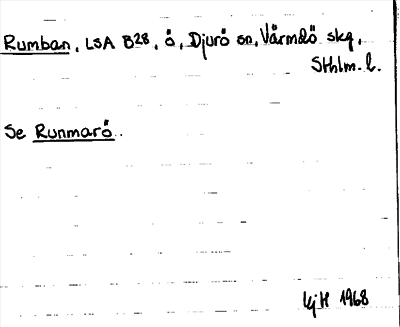 Rumban, LSA B28, ö, Djurö sn, Värmdö skg,
Sthlm. l.
Se Runmarö.
1968